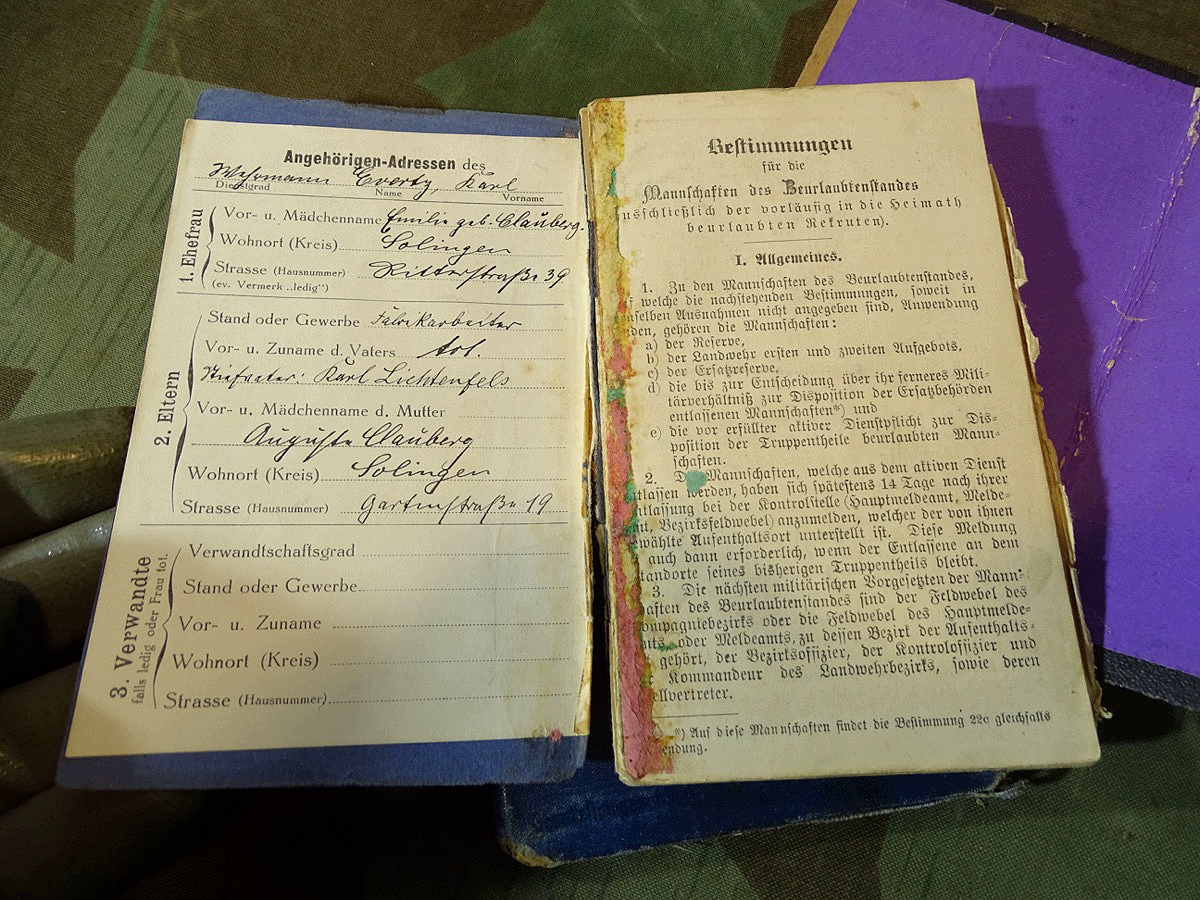 Angehörigen-Adressen des
Wehrmann Evertz, Karl
Dienstgrad Name Vorname
1. Ehefrau
Vor- u. Mädchenname Emilie geb. Clauberg.
Wohnort (Kreis) Solingen
Strasse (Hausnummer) Ritterstraße 39
(ev. Vermerk „ledig“)
2. Eltern
Stand oder Gewerbe Fabrikarbeiter
Vor- u. Zuname d. Vaters tot.
Stiefvater: Karl Lichtenfels
Vor- u. Mädchenname d. Mutter
Auguste Clauberg
Wohnort (Kreis) Solingen
Strasse (Hausnummer) Gartenstraße 19
3. Verwandte
falls ledig oder Frau tot.
Verwandtschaftsgrad
Stand oder Gewerbe
Vor- u. Zuname
Wohnort (Kreis)
Strasse (Hausnummer)
Bestimmungen
für die
Mannschaften des Beurlaubtenstandes
usschließlich der vorläufig in die Heimath
beurlaubten Rekruten).
I. Allgemeines.
1. Zu den Mannschaften des Beurlaubtenstandes,
f welche die nachstehenden Bestimmungen, soweit in
nselben Ausnahmen nicht angegeben sind, Anwendung
den, gehören die Mannschaften:
a) der Reserve,
b) der Landwehr ersten und zweiten Aufgebots,
c) der Ersatzreserve,
d) die bis zur Entscheidung über ihr ferneres Mili-
tärverhältniß zur Disposition der Ersatzbehörden
entlassenen Mannschaften*) und
e) die vor erfüllter aktiver Dienstpflicht zur Dis-
position der Truppentheile beurlaubten Mann-
schaften.
2. D Mannschaften, welche aus dem aktiven Dienst
tlassen werden, haben sich spätestens 14 Tage nach ihrer
tlassung bei der Kontrolstelle (Hauptmeldeamt, Melde-
mt, Bezirksfeldwebel) anzumelden, welcher der von ihnen
ewählte Aufenthaltsort unterstellt ist. Diese Meldung
auch dann erforderlich, wenn der Entlassene an dem
tandorte seines bisherigen Truppentheils bleibt.
3. Die nächsten militärischen Vorgesetzten der Mann-
aften des Beurlaubtenstandes sind der Feldwebel des
ompagniebezirks oder die Feldwebel des Hauptmelde-
mts oder Meldeamts, zu dessen Bezirk der Aufenthalts-
gehört, der Bezirksoffizier, der Kontroloffizier und
Kommandeur des Landwehrbezirks, sowie deren
ellvertreter.
*) Auf diese Mannschaften findet die Bestimmung 22c gleichfalls
endung.